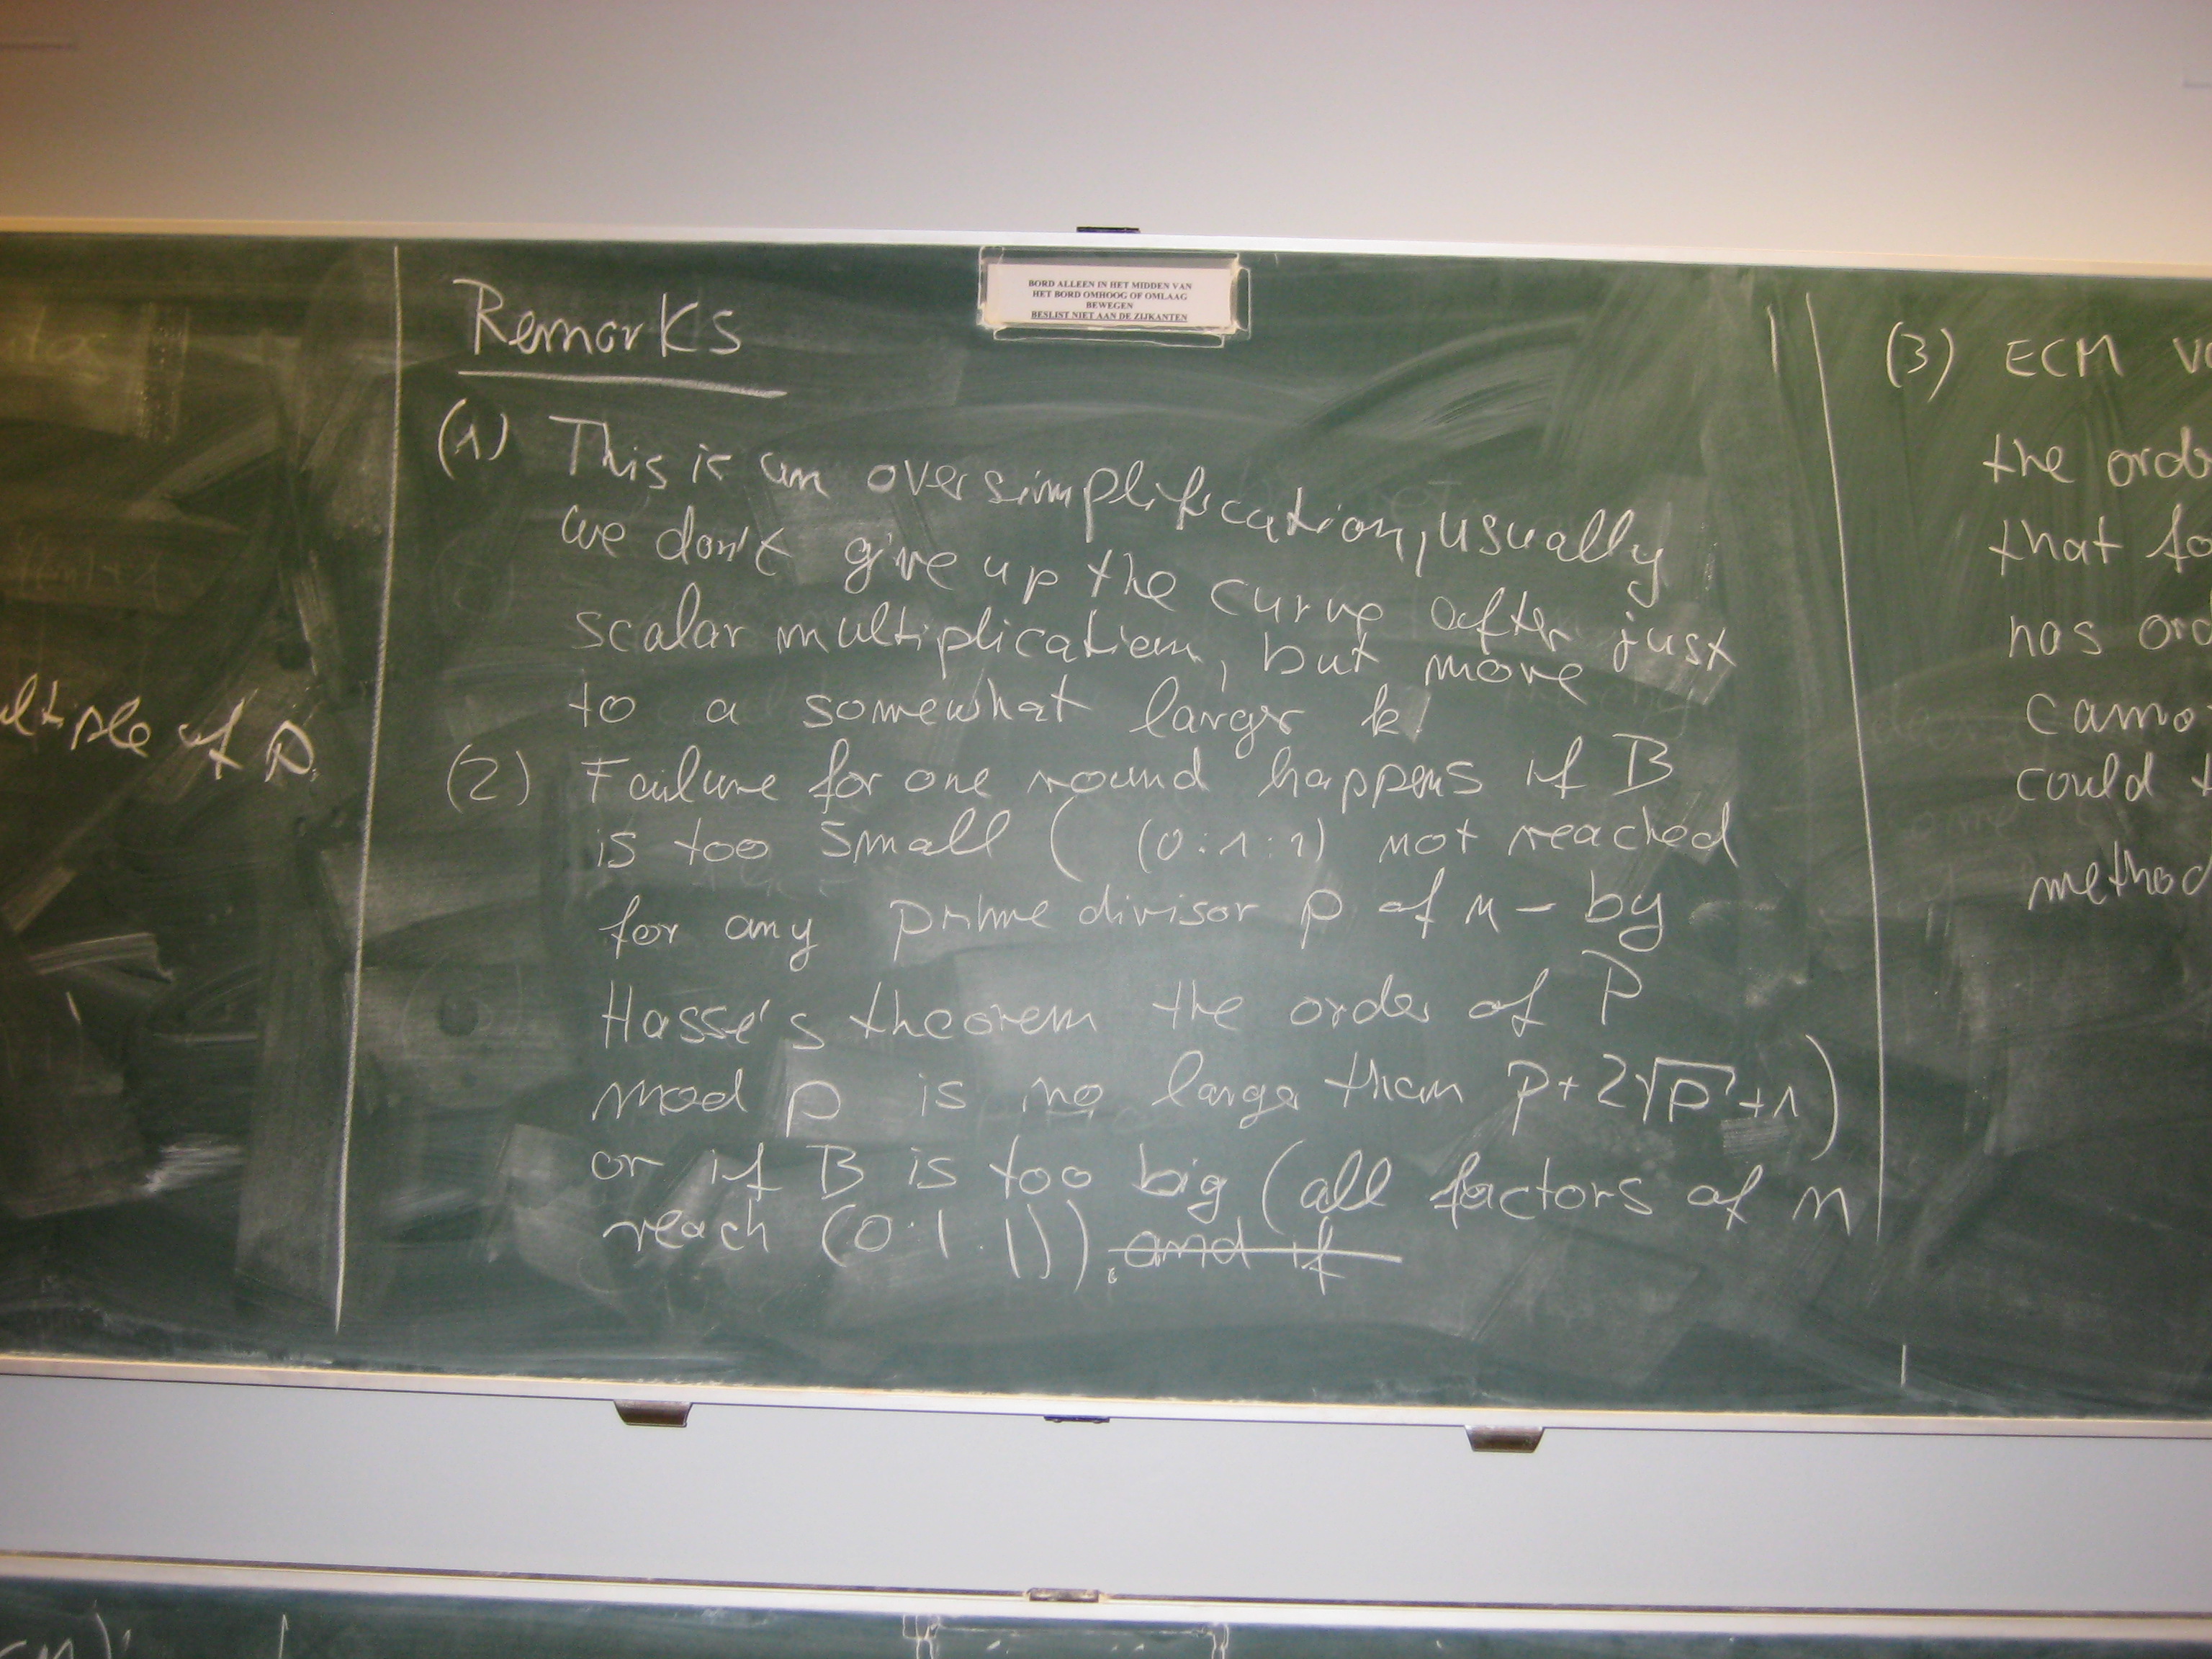 BORD ALLEEN IN HET MIDDEN VAN
HET BORD OMHOOG OF OMLAAG
BEWEGEN
BESLIST NIET AAN DE ZIJKANTEN
ultiple of p.
Remarks
(1) This is an oversimplification, usually
we don't give up the curve after just
scalar multiplication, but move
to a somewhat larger k!
(2) Failure for one round happens if B
is too small ( (0:1:1) not reached
for any prime divisor p of n - by
Hasse's theorem the order of P
mod p is no larger than p+2√p+1)
or if B is too big (all factors of n
reach (0:1:1)). and if
(3) ECM
the orde
that fo
has ord
canno
could t
method